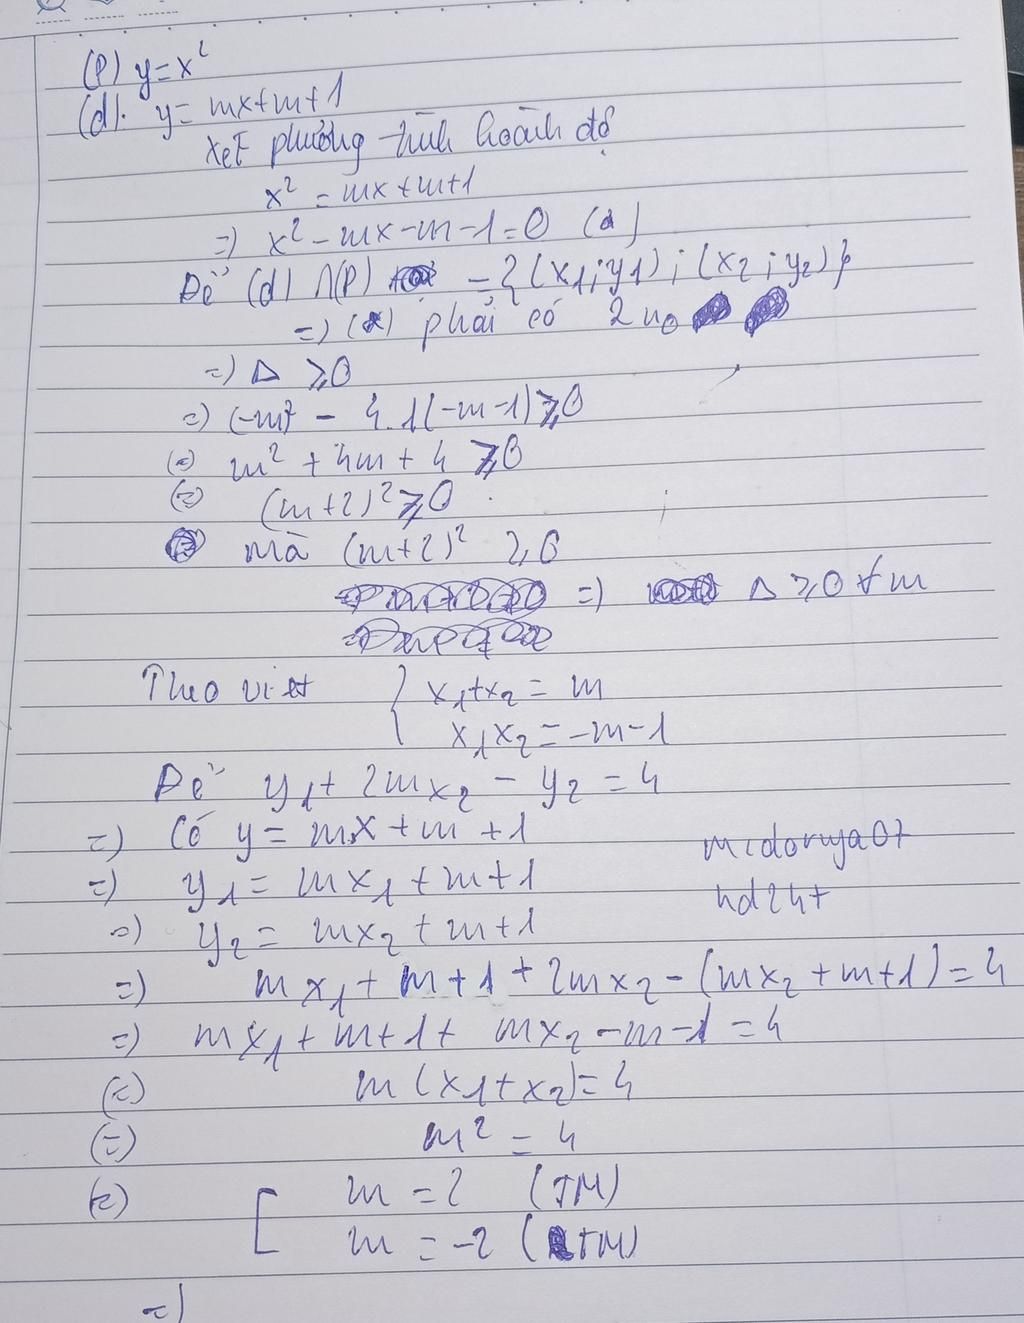 (P) y=x²
(d). y= mx+m+1
Xét phương trình hoành độ
x² = mx+m+1
=) x² - mx - m - 1 = 0 (*)
Để (d) ∩ (P) = {(x₁;y₁) ; (x₂;y₂)}
=) (*) phải có 2 n₀
=) Δ ⩾ 0
=) (-m)² - 4.1(-m-1) ⩾ 0
(=) m² + 4m + 4 ⩾ 0
(=) (m+2)² ⩾ 0
mà (m+2)² ⩾ 0
=) Δ ⩾ 0 ∀ m
Theo viet { x₁+x₂ = m
x₁x₂ = -m-1
Để y₁ + 2mx₂ - y₂ = 4
=) Có y = mx + m + 1
=) y₁ = mx₁ + m + 1
=) y₂ = mx₂ + m + 1
midoruya07
hd247
=) mx₁ + m + 1 + 2mx₂ - (mx₂ + m + 1) = 4
=) mx₁ + m + 1 + mx₂ - m - 1 = 4
(=) m(x₁+x₂) = 4
(=) m² = 4
(=) [ m = 2 (TM)
m = -2 (TM)
=)